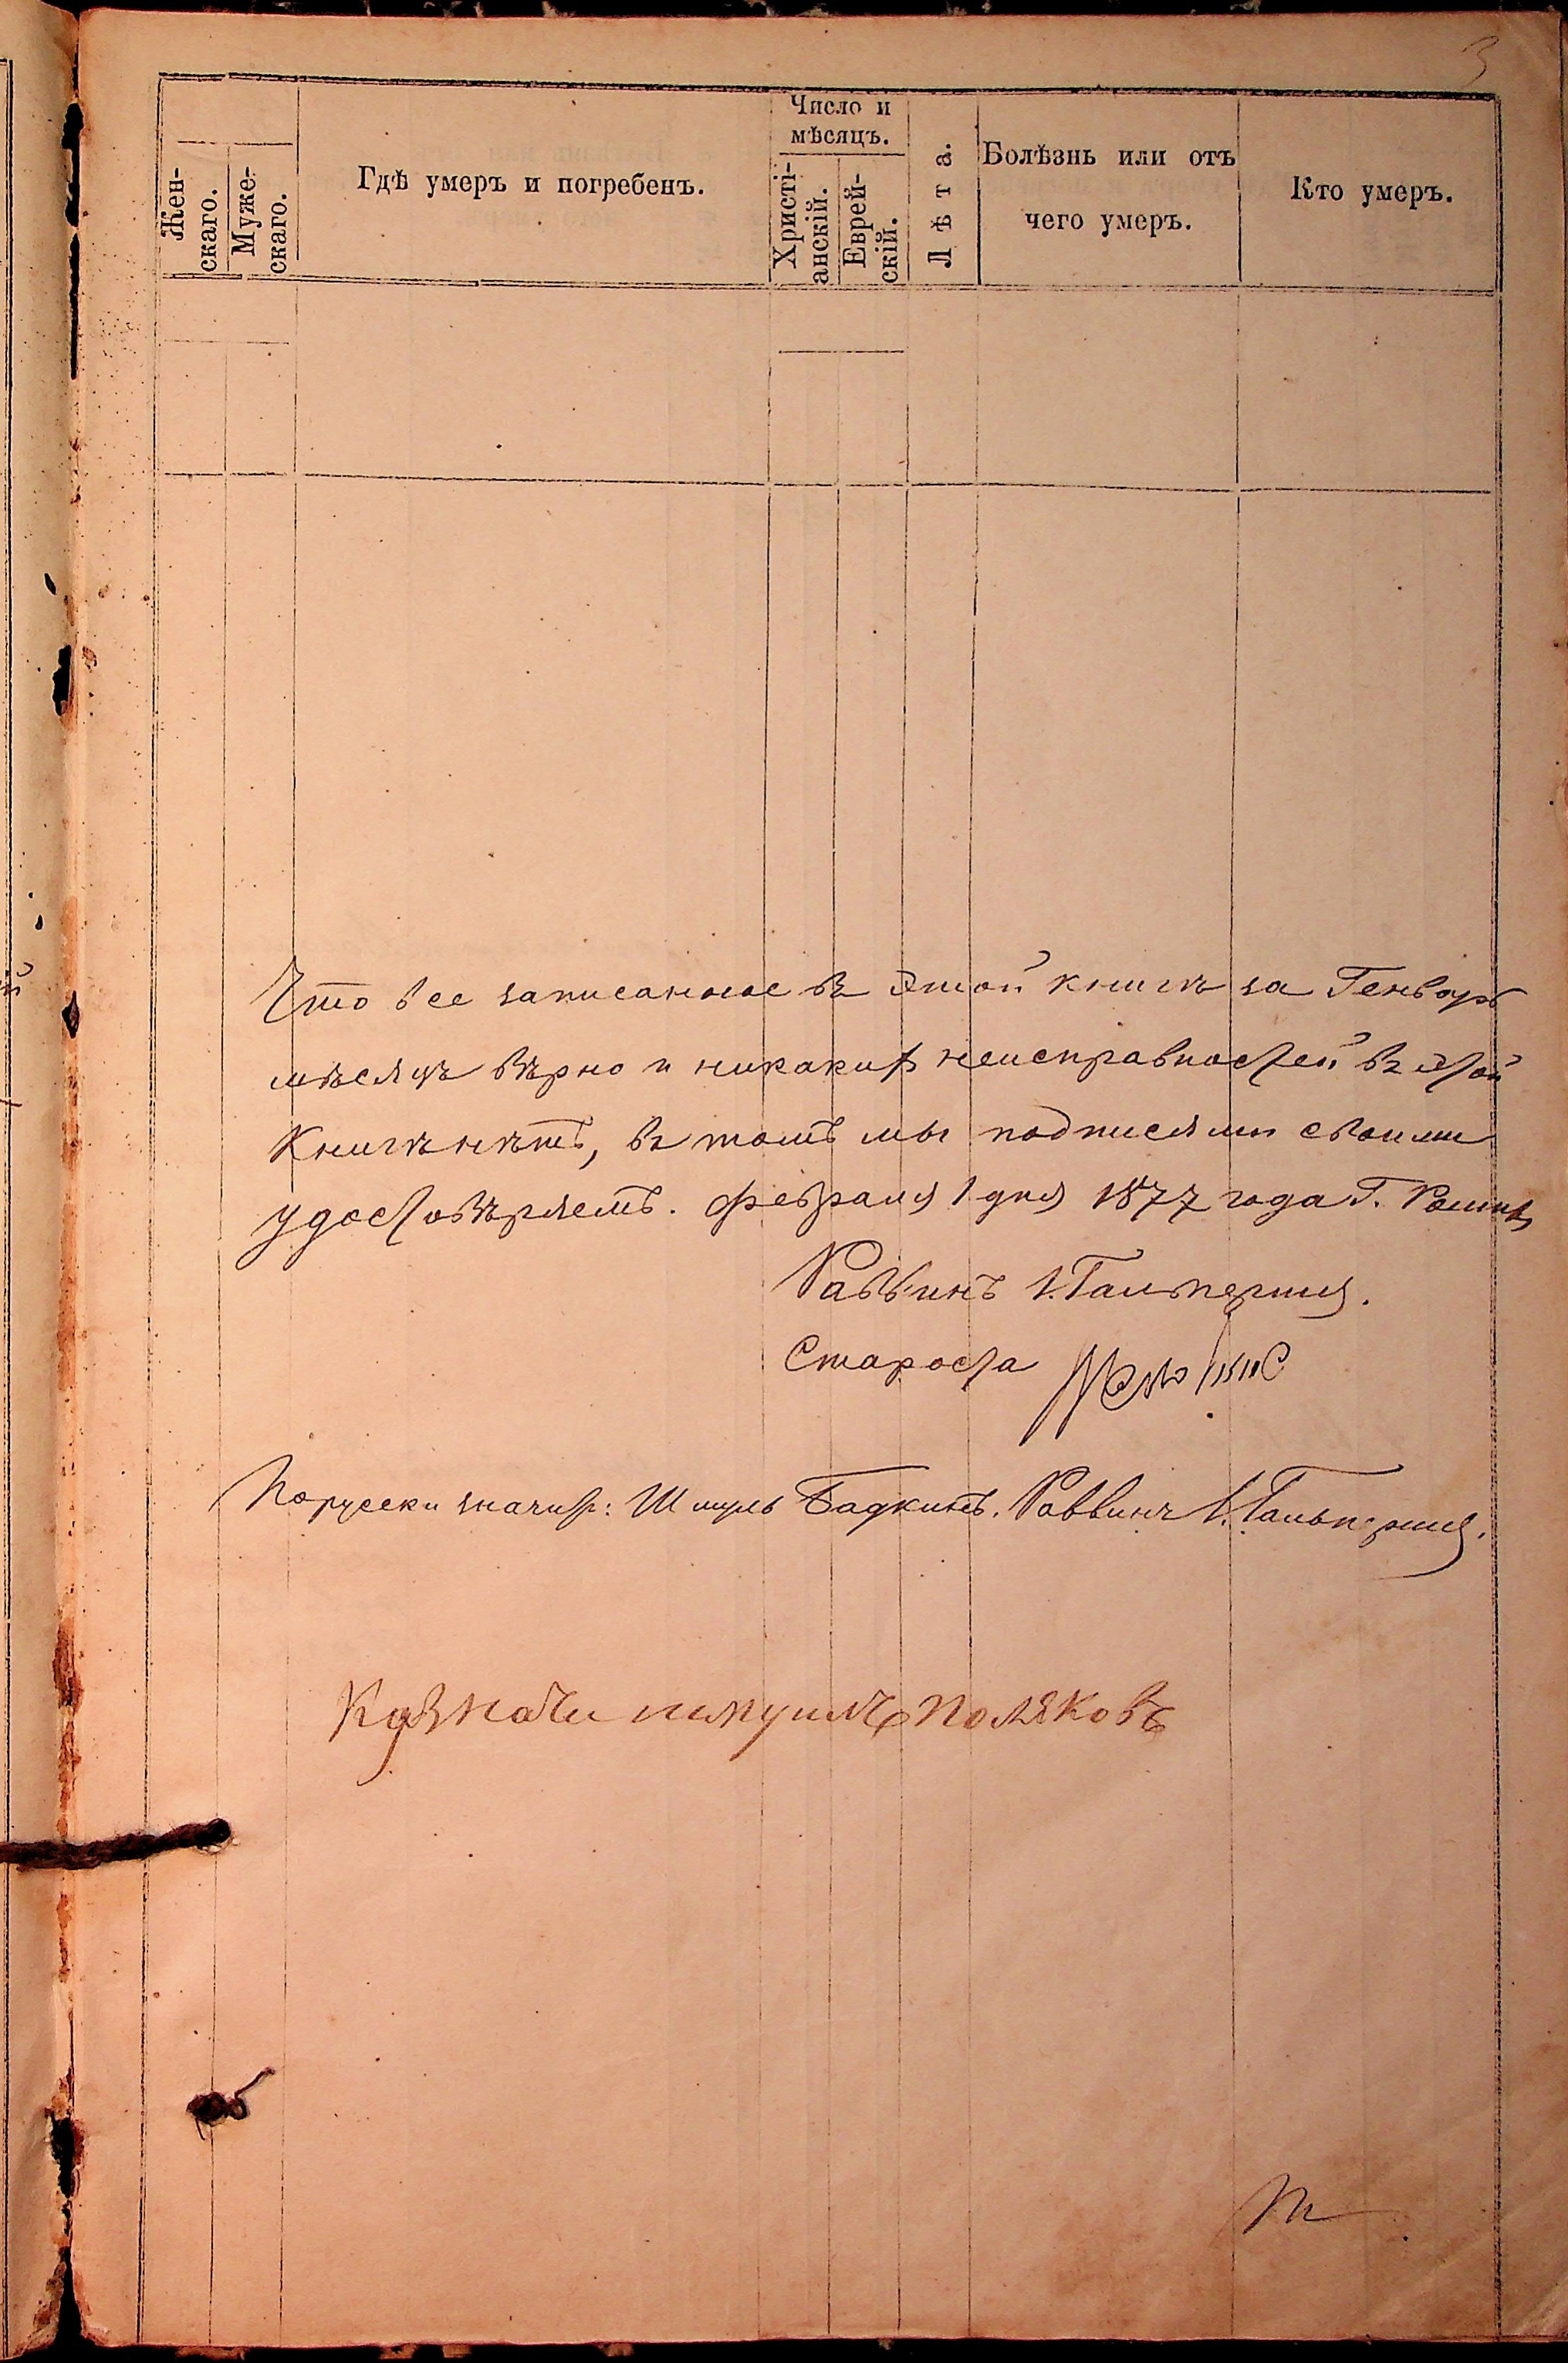 3
Жен-
скаго.
Муже-
скаго.
Гдѣ умеръ и погребенъ.
Число и
мѣсяцъ.
Христі-
анскій.
Еврей-
скій.
Лѣта.
Болѣзнь или отъ
чего умеръ.
Кто умеръ.
Что все записанное въ этой книгѣ за Генварь
мѣсяцъ вѣрно и никакихъ неисправностей въ этой
Книгѣ нѣтъ, въ томъ мы подписями своими
удостовѣряемъ. Февраля 1 дня 1877 года Г.
Раввинъ І. Гальперинъ.
Староста
По русски значитъ: Шмуль Бадкинъ. Раввинъ І. Гальперинъ.
Казначи Поляковъ